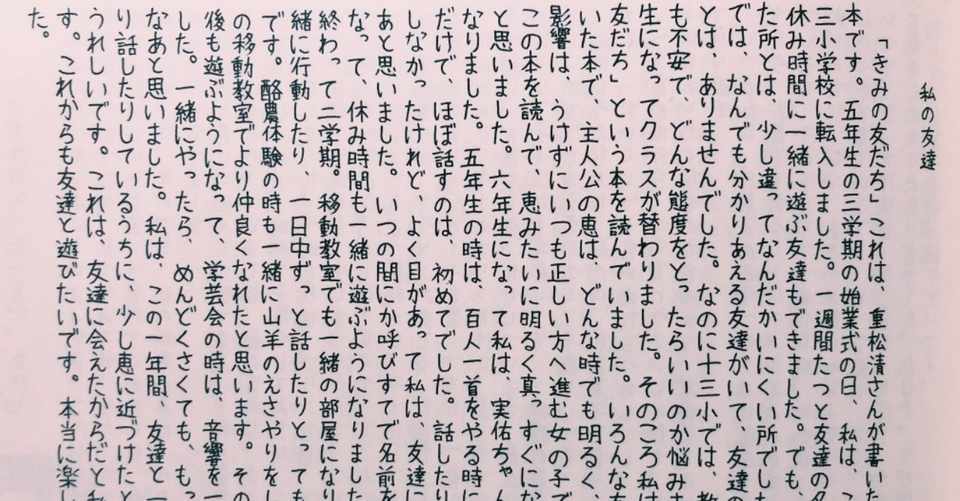 私の友達
「きみの友だち」これは、重松清さんが書いた
本です。五年生の三学期の始業式の日、私は、
三小学校に転入しました。一週間たつと友達の
休み時間に一緒に遊ぶ友達もできました。でも、
た所とは、少し違ってなんだかいにくい所でし
では、なんでも分かりあえる友達がいて、友達の
とは、ありませんでした。なのに十三小では、教
も不安で、どんな態度をとったらいいのか悩みま
生になってクラスが替わりました。そのころ私は
友だち」という本を読んでいました。いろんなち
いた本で、主人公の恵は、どんな時でも明るく、
影響は、うけずにいつも正しい方へ進む女の子で
この本を読んで、恵みたいに明るく真っすぐにな
と思いました。六年生になって私は、実佑ちゃん
なりました。五年生の時は、百人一首をやる時に
だけで、ほぼ話すのは、初めてでした。話したり
しなかったけれど、よく目があって私は、友達に
あと思いました。いつの間にか呼びすてで名前を
なって、休み時間も一緒に遊ぶようになりました
終わって二学期。移動教室でも一緒の部屋になり
緒に行動したり、一日中ずっと話したりとっても
です。酪農体験の時も一緒に山羊のえさやりをし
の移動教室でより仲良くなれたと思います。その
後も遊ぶようになって、学芸会の時は、音響を一
した。一緒にやったら、めんどくさくても、もっ
なあと思いました。私は、この一年間、友達と一
り話したりしているうちに、少し恵に近づけたと
うれしいです。これは、友達に会えたからだと私
す。これからも友達と遊びたいです。本当に楽し
た。